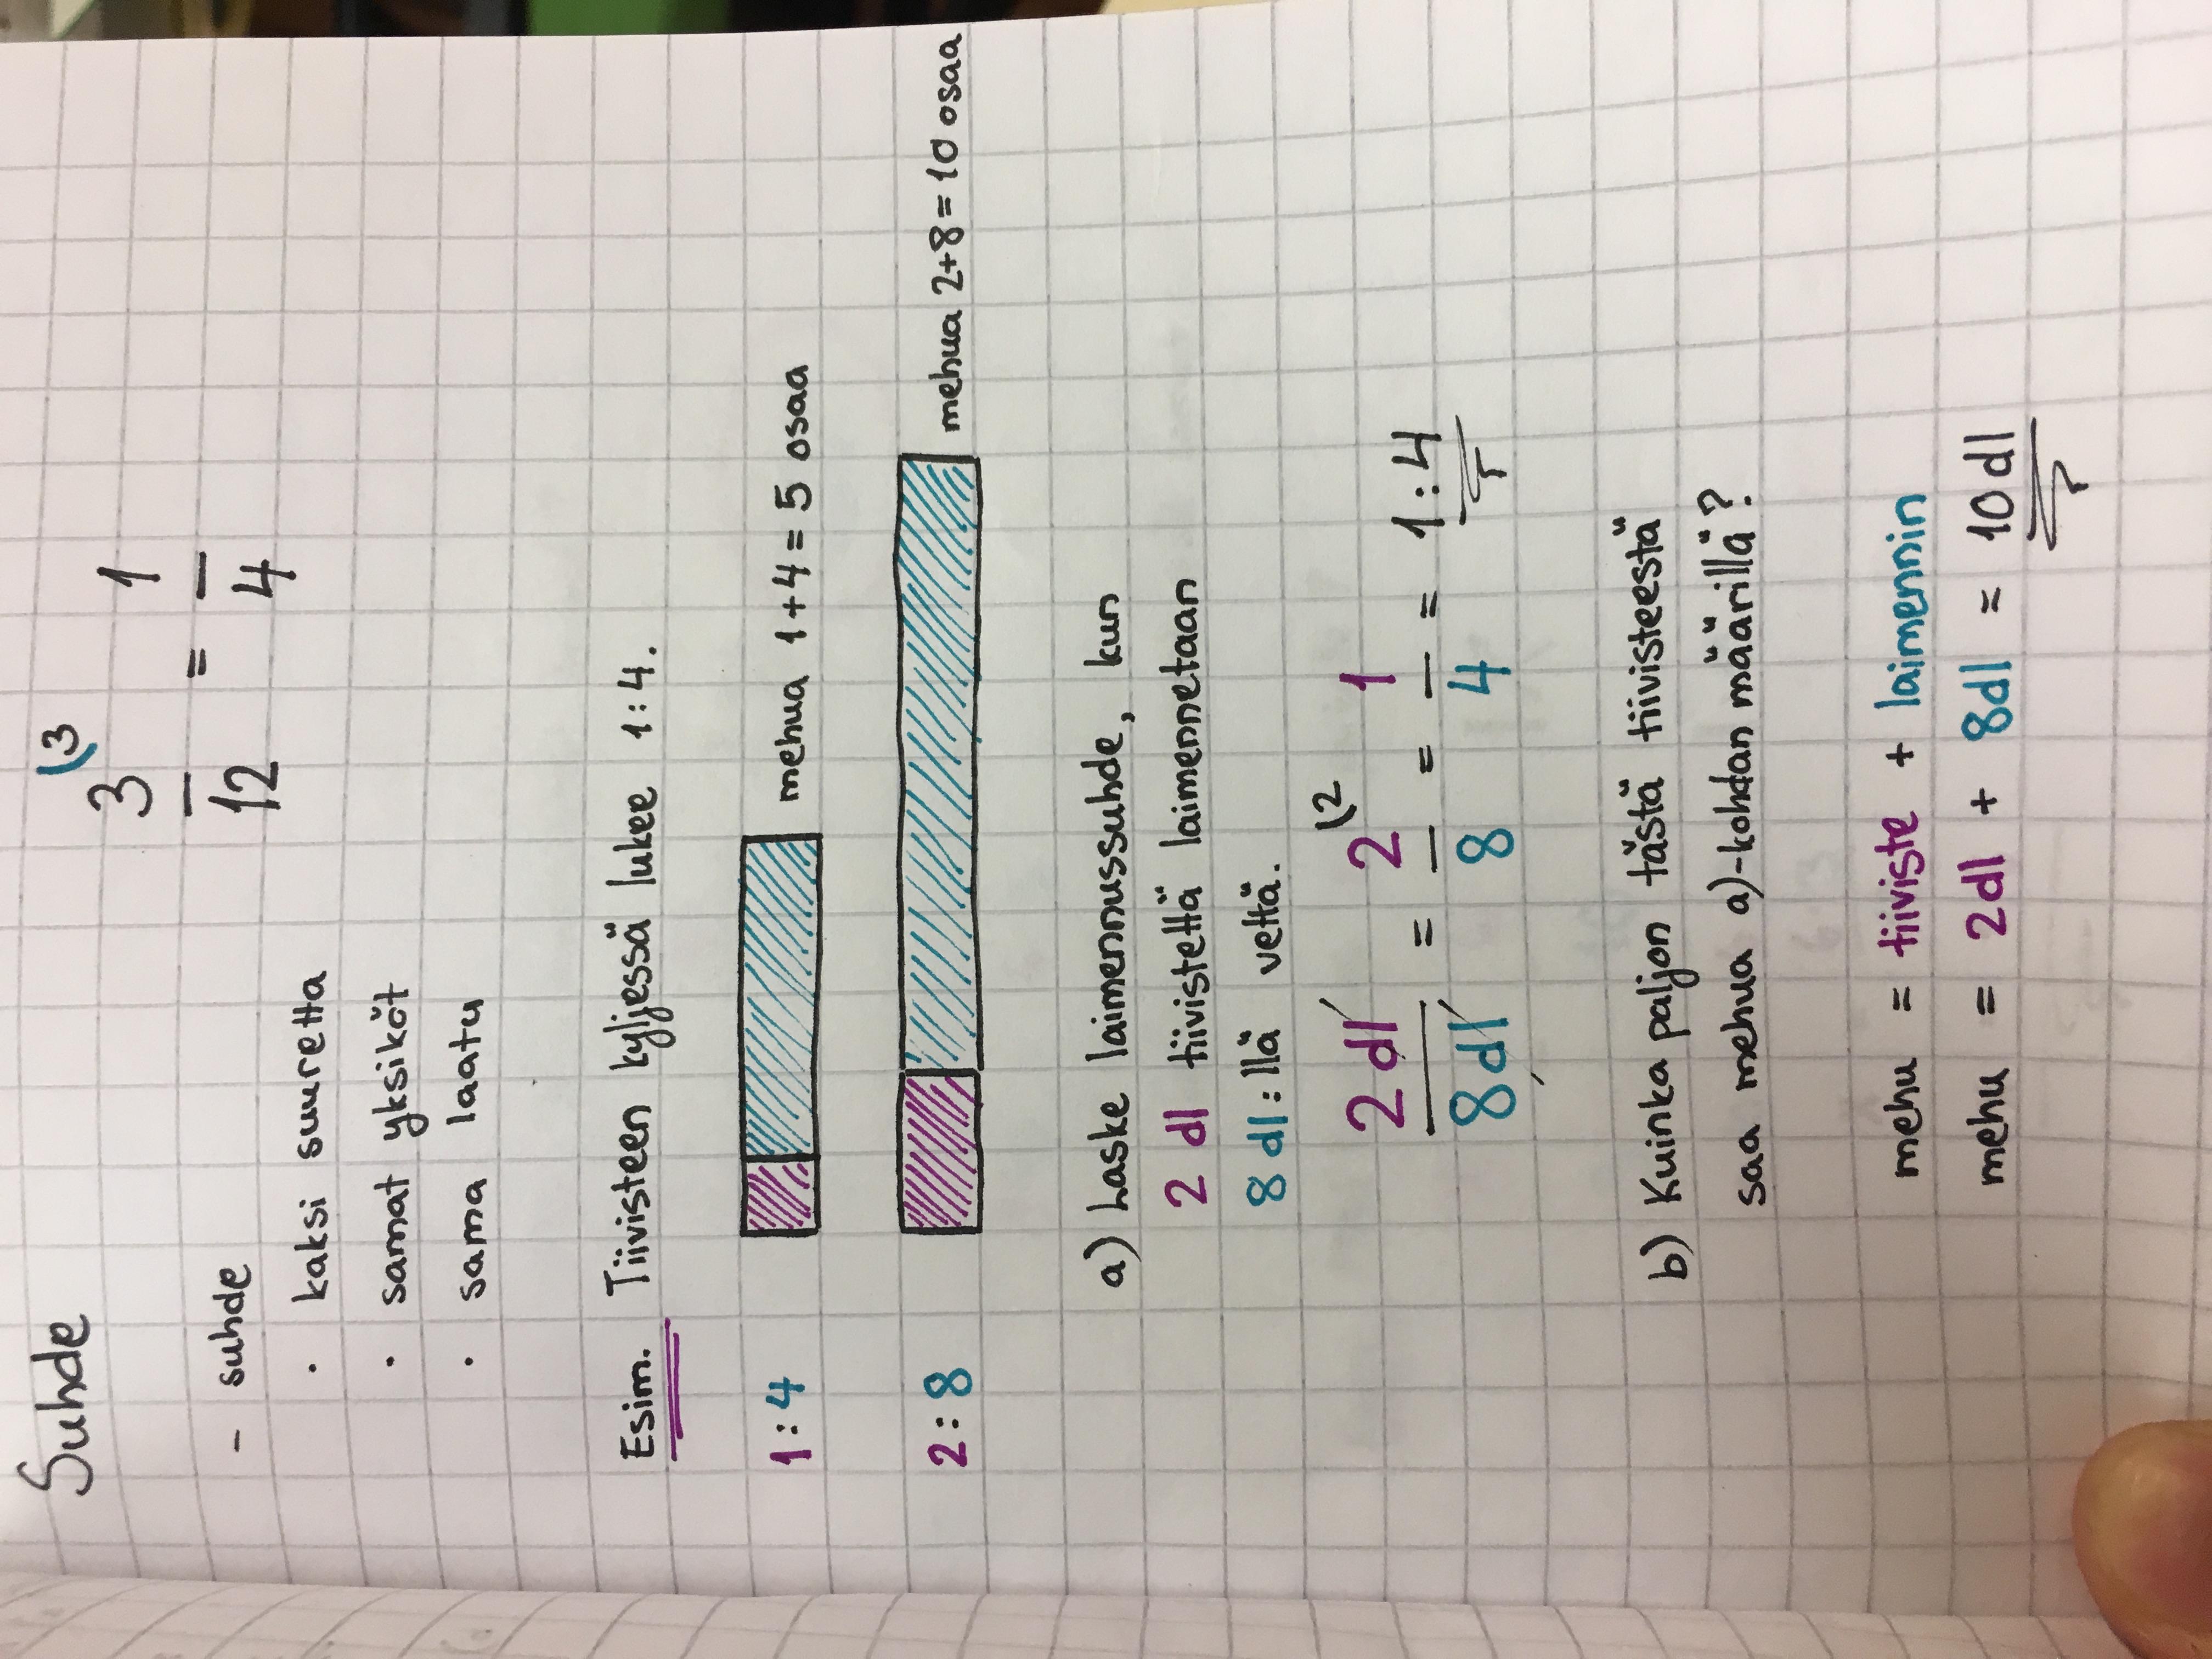 Suhde
3 (3
— = —
12 4
1
- suhde
· kaksi suuretta
· samat yksiköt
· sama laatu
Esim. Tiivisteen kyljessä lukee 1:4.
1:4 mehua 1+4=5 osaa
2:8 mehua 2+8=10 osaa
a) Laske laimennussuhde, kun
2 dl tiivistettä laimennetaan
8 dl:llä vettä.
2 dl/8 dl = 2/8 (2 = 1/4 = 1:4
b) Kuinka paljon tästä tiivisteestä
saa mehua a)-kohdan määrillä?
mehu = tiiviste + laimennin
mehu = 2dl + 8dl = 10 dl